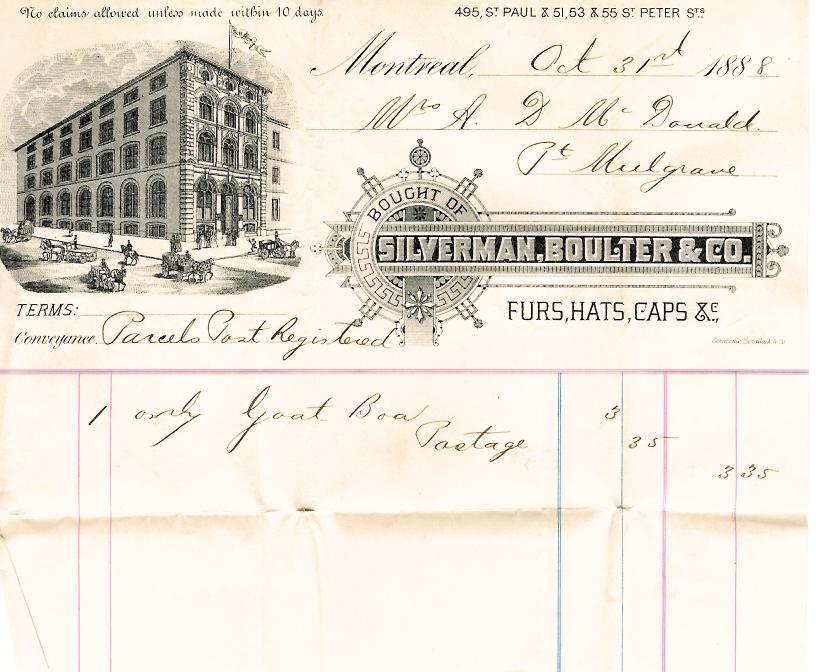 No claims allowed unless made within 10 days.
495, ST PAUL & 51, 53 & 55 ST PETER STS
Montreal, Oct 31st 1888
Mrs A. D Mc Donald.
Pt Mulgrave
BOUGHT OF
SILVERMAN, BOULTER & CO.
FURS, HATS, CAPS &C,
TERMS:
Conveyance. Parcels Post Registered
1 only Goat Boa 3
Postage 35
3 35